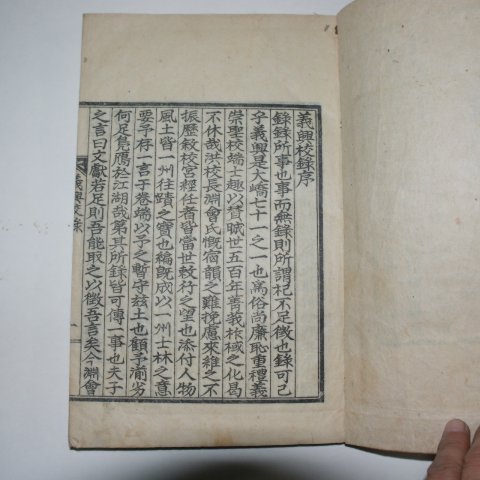 義興校錄序
錄錄所事也事而無錄則所謂杞不足徵也錄可已
乎義興是大嶠七十一之一也爲俗尚廉恥重禮義
崇聖校端士趣以贊 世五百年善義棫樸之化曷
不休哉洪校長淵會氏慨宿韻之難挽慮來雄之不
振歷敘校宮經任者皆當世敦行之望也添付人物
風土皆一州往蹟之寶也編旣成以一州士林之意
要予存一言于卷端以予之暫守玆土也顧予渝劣
何足爲鴈於江湖哉第其所錄皆可傳一事也夫子
之言曰文獻若足則吾能取之以徵吾言矣今淵會
義興校錄
一